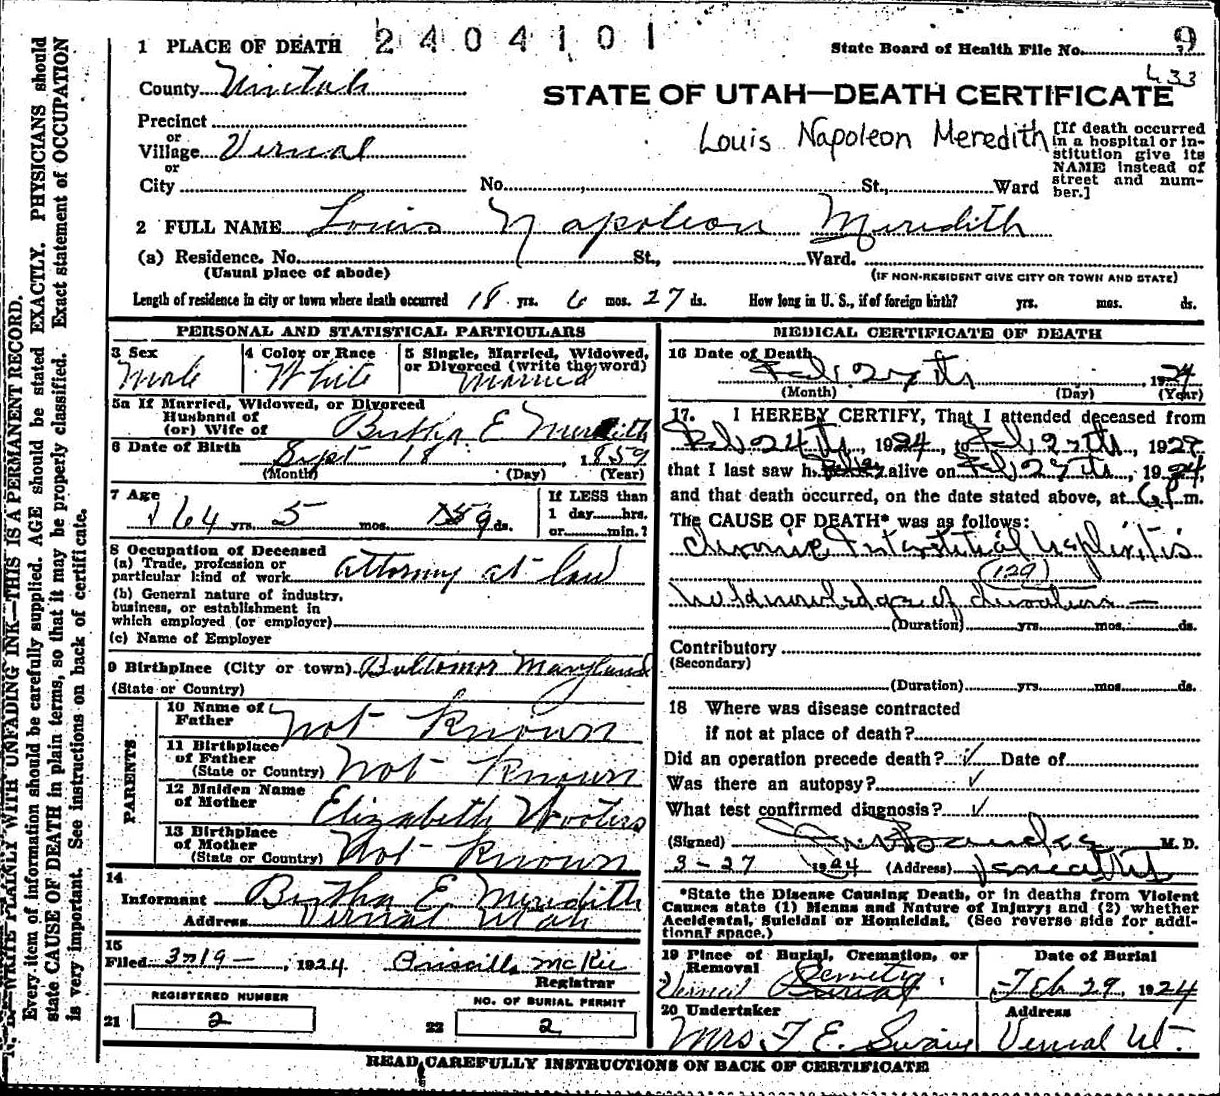 1 PLACE OF DEATH 2404101 State Board of Health File No. 9
433
County Uintah
STATE OF UTAH—DEATH CERTIFICATE
Precinct
or
Village Vernal
or
City No. , St., Ward
Louis Napoleon Meredith
[If death occurred
in a hospital or in-
stitution give its
NAME instead of
street and num-
ber.]
2 FULL NAME Louis Napoleon Meredith
(a) Residence. No. St., Ward.
(Usual place of abode) (IF NON-RESIDENT GIVE CITY OR TOWN AND STATE)
Length of residence in city or town where death occurred 18 yrs. 6 mos. 27 ds. How long in U. S., if of foreign birth? yrs. mos. ds.
PERSONAL AND STATISTICAL PARTICULARS
3 Sex
Male
4 Color or Race
White
5 Single, Married, Widowed,
or Divorced (write the word)
Married
5a If Married, Widowed, or Divorced
Husband of
(or) Wife of Bertha E Meredith
6 Date of Birth Sept 18, 1859
(Month) (Day) (Year)
7 Age
64 yrs. 5 mos. 9 ds.
If LESS than
1 day hrs.
or min.?
8 Occupation of Deceased
(a) Trade, profession or
particular kind of work attorney at law
(b) General nature of industry,
business, or establishment in
which employed (or employer)
(c) Name of Employer
9 Birthplace (City or town) Baltomor Maryland
(State or Country)
PARENTS
10 Name of
Father Not Known
11 Birthplace
of Father
(State or Country) Not Known
12 Maiden Name
of Mother Elizabeth Wooters
13 Birthplace
of Mother
(State or Country) Not Known
14
Informant Bertha E Meredith
Address Vernal Utah
15
Filed 3-19-, 1924 Priscilla McKee
Registrar
REGISTERED NUMBER
21 2
NO. OF BURIAL PERMIT
22 2
MEDICAL CERTIFICATE OF DEATH
16 Date of Death
Feb. 27th, 1924
(Month) (Day) (Year)
17. I HEREBY CERTIFY, That I attended deceased from
Feb 24th, 1924, to Feb 27th, 192
that I last saw h alive on Feb 27th, 1924,
and that death occurred, on the date stated above, at 6 P m.
The CAUSE OF DEATH* was as follows:
Chronic Interstitial Nephritis
(129)
No knowledge of duration —
(Duration) yrs. mos. ds.
Contributory
(Secondary)
(Duration) yrs. mos. ds.
18 Where was disease contracted
if not at place of death?
Did an operation precede death? ✓ Date of
Was there an autopsy? ✓
What test confirmed diagnosis? ✓
(Signed) M. D.
3-27 1924 (Address)
*State the Disease Causing Death, or in deaths from Violent
Causes state (1) Means and Nature of Injury; and (2) whether
Accidental, Suicidal or Homicidal. (See reverse side for addi-
tional space.)
19 Place of Burial, Cremation, or
Removal Cemetery
Vernal Burial
Date of Burial
Feb 29, 1924
20 Undertaker
Mrs F E. Swain
Address
Vernal Ut.
READ CAREFULLY INSTRUCTIONS ON BACK OF CERTIFICATE
N. B.—WRITE PLAINLY WITH UNFADING INK—THIS IS A PERMANENT RECORD.
Every item of information should be carefully supplied. AGE should be stated EXACTLY. PHYSICIANS should
state CAUSE OF DEATH in plain terms, so that it may be properly classified. Exact statement of OCCUPATION
is very important. See instructions on back of certificate.